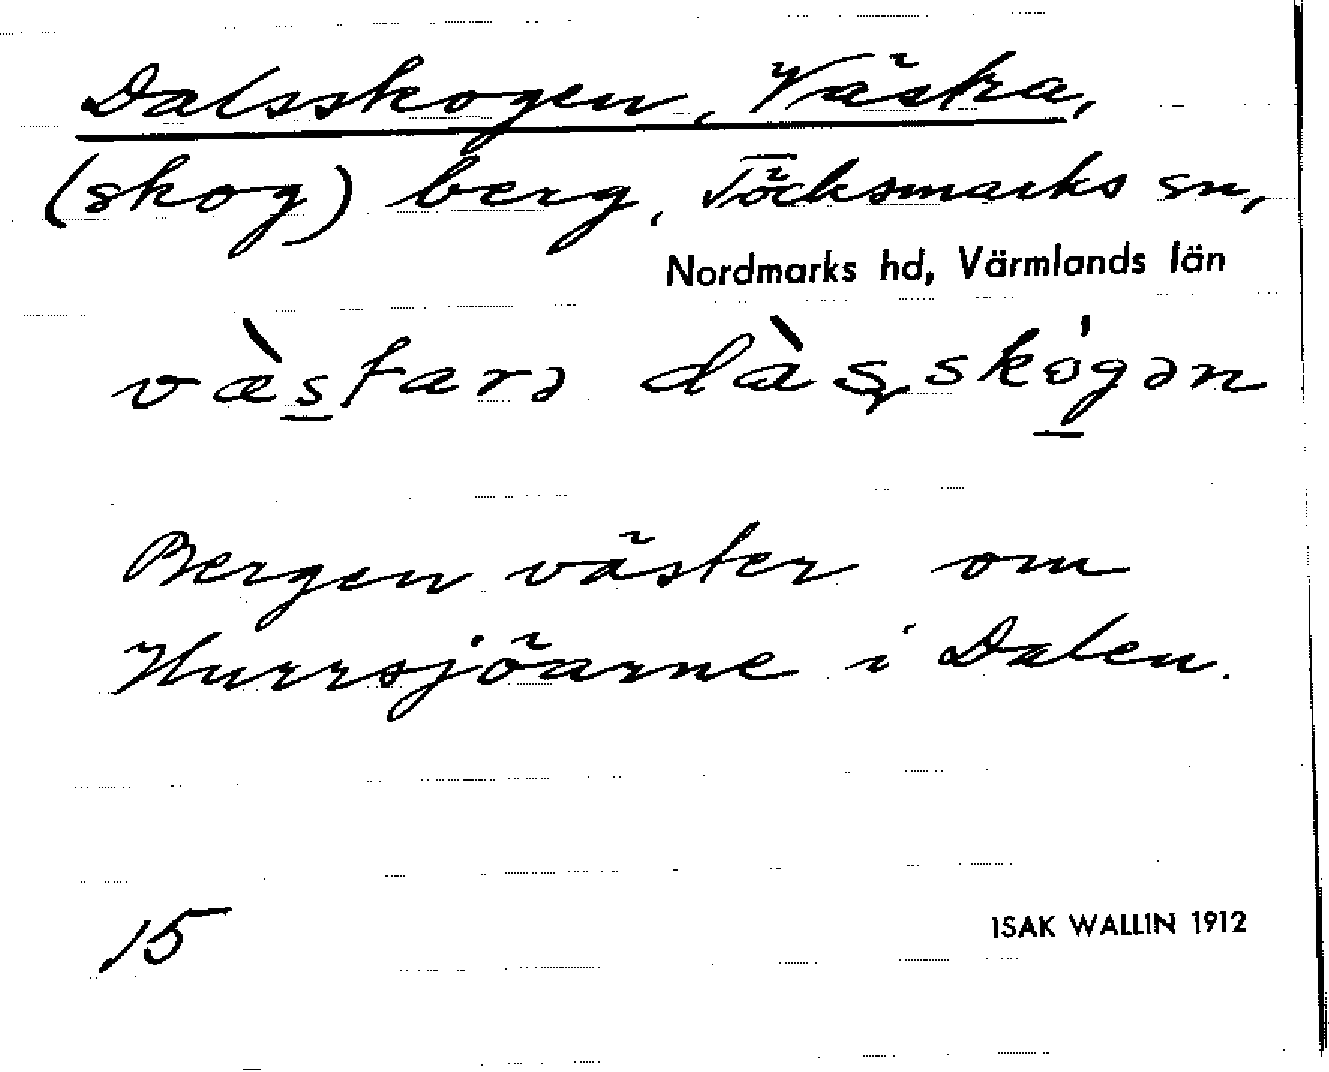 Dalsskogen, Västra,
(skog) berg, Töcksmarks sn,
Nordmarks hd, Värmlands län
væ̀starə dàsskógən
Bergen väster om
Hurrsjöarne i Dalen.
15
ISAK WALLIN 1912